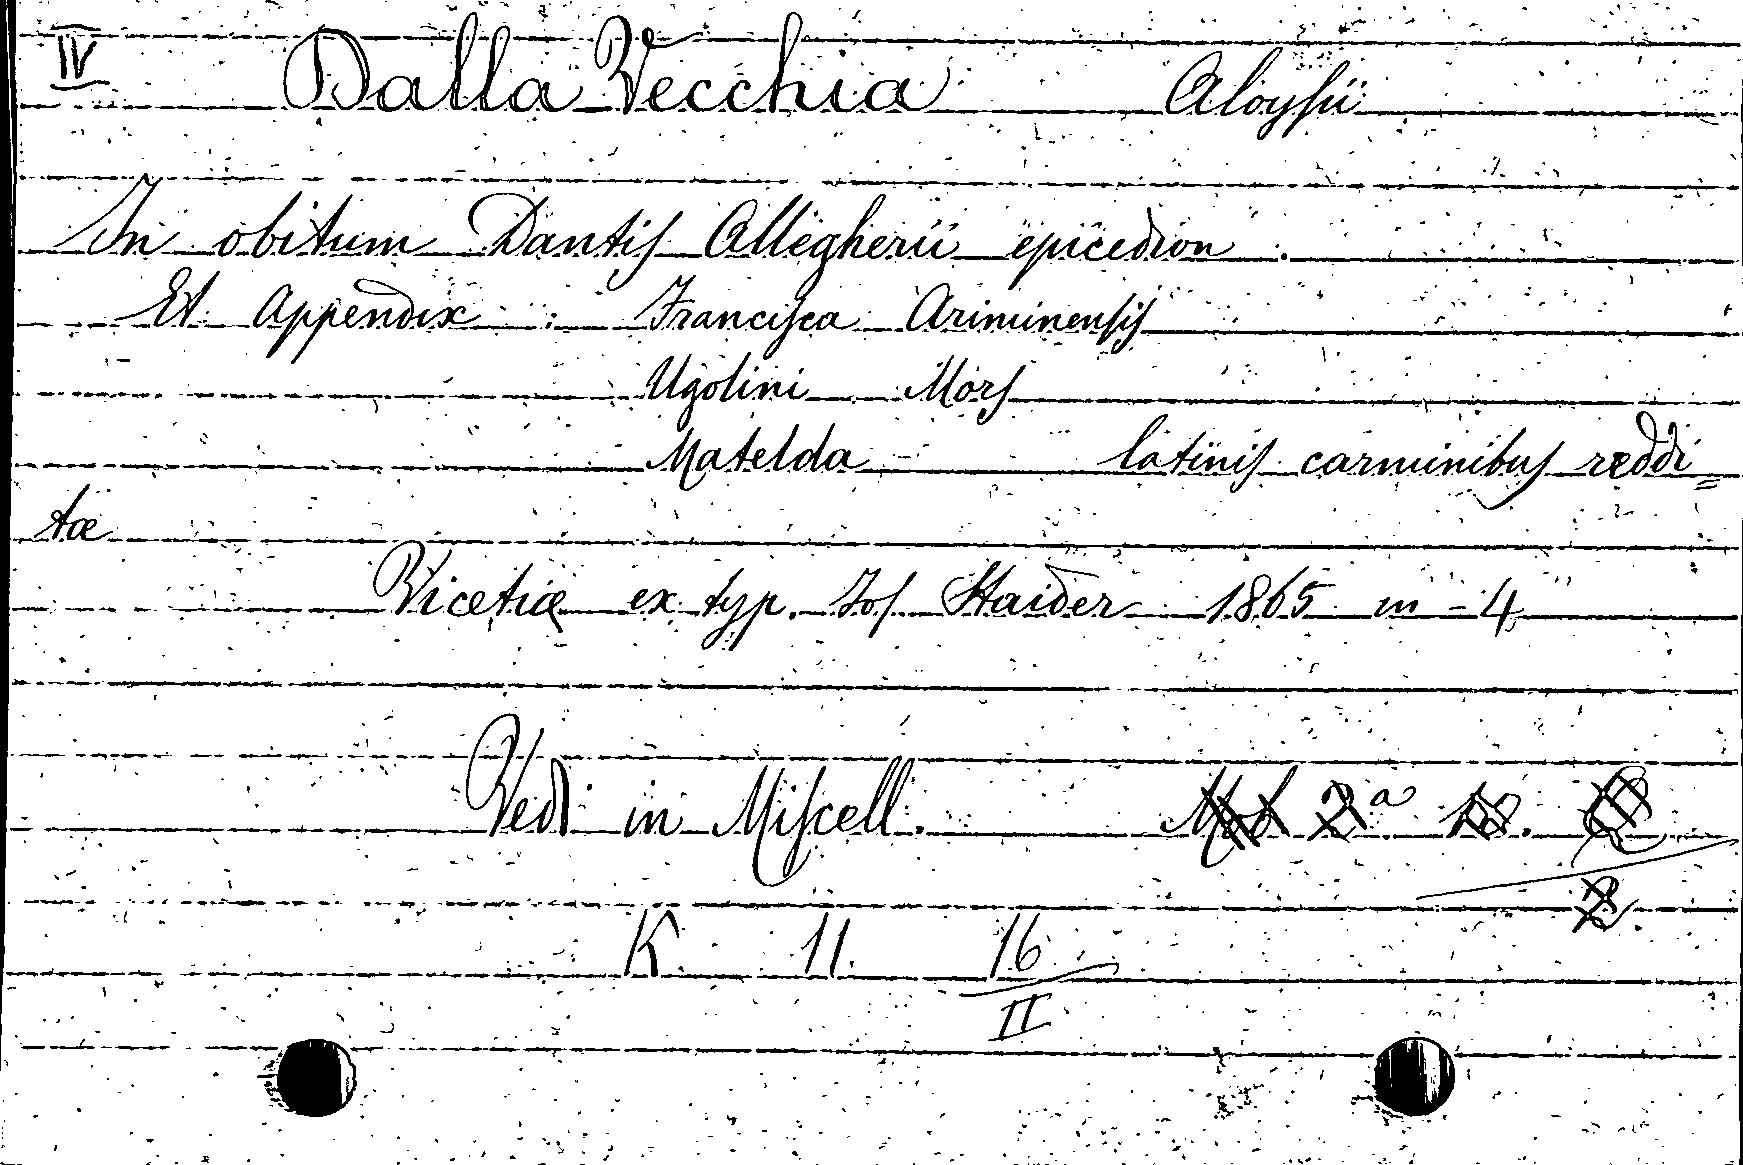 IV Dalla Vecchia Aloysii
In obitum Dantis Allegherii epicedion.
Et Appendix: Francisca Ariminensis
Ugolini Mors
Matelda latinis carminibus reddi=
tæ
Vicetiæ ex typ. Jos Staider 1865 in-4
Vedi in Miscell. 2ª
2
K. 11. 16
II